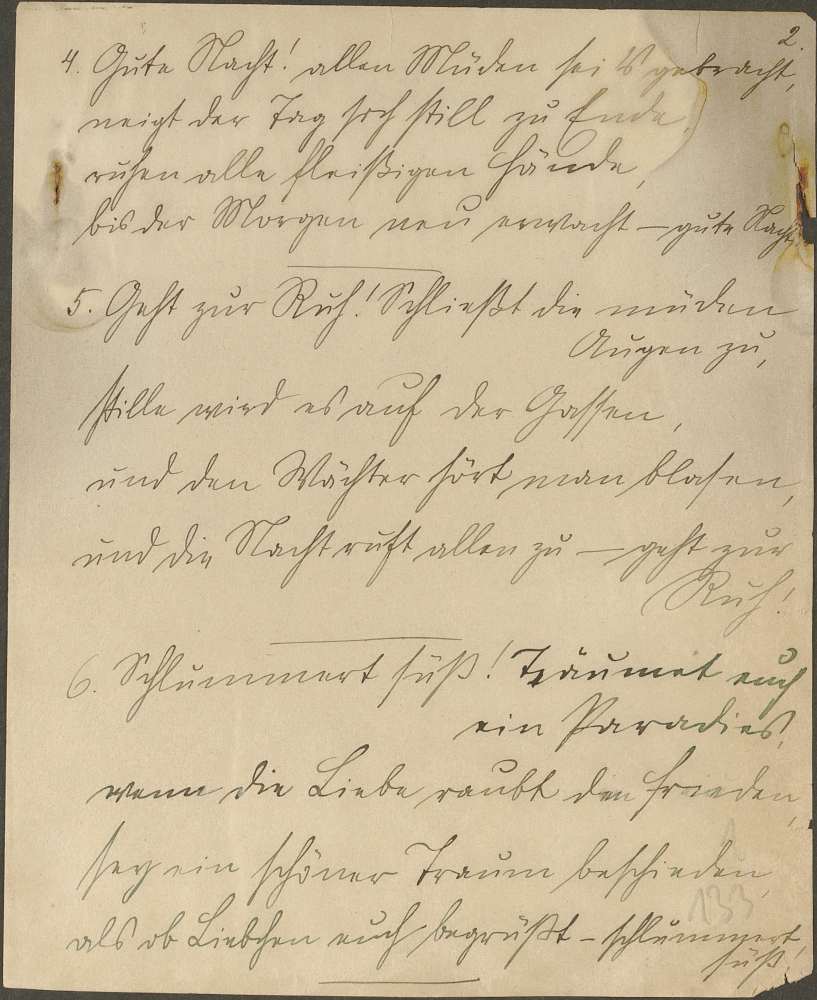 2.
4. Gute Nacht! allen Müden sei's gebracht,
neigt der Tag sich still zu Ende,
ruhen alle fleißigen Hände,
bis der Morgen neu erwacht – gute Nacht,
5. Geht zur Ruh! Schließt die müden
Augen zu,
stille wird es auf der Gassen,
und den Wächter hört man blasen,
und die Nacht ruft allen zu – geht zur
Ruh!
6. Schlummert süß! Träumet euch
ein Paradies,
wenn die Liebe raubt den Frieden,
sey ein schöner Traum beschieden,
als ob Liebchen euch begrüßt – schlummert
süß!
133